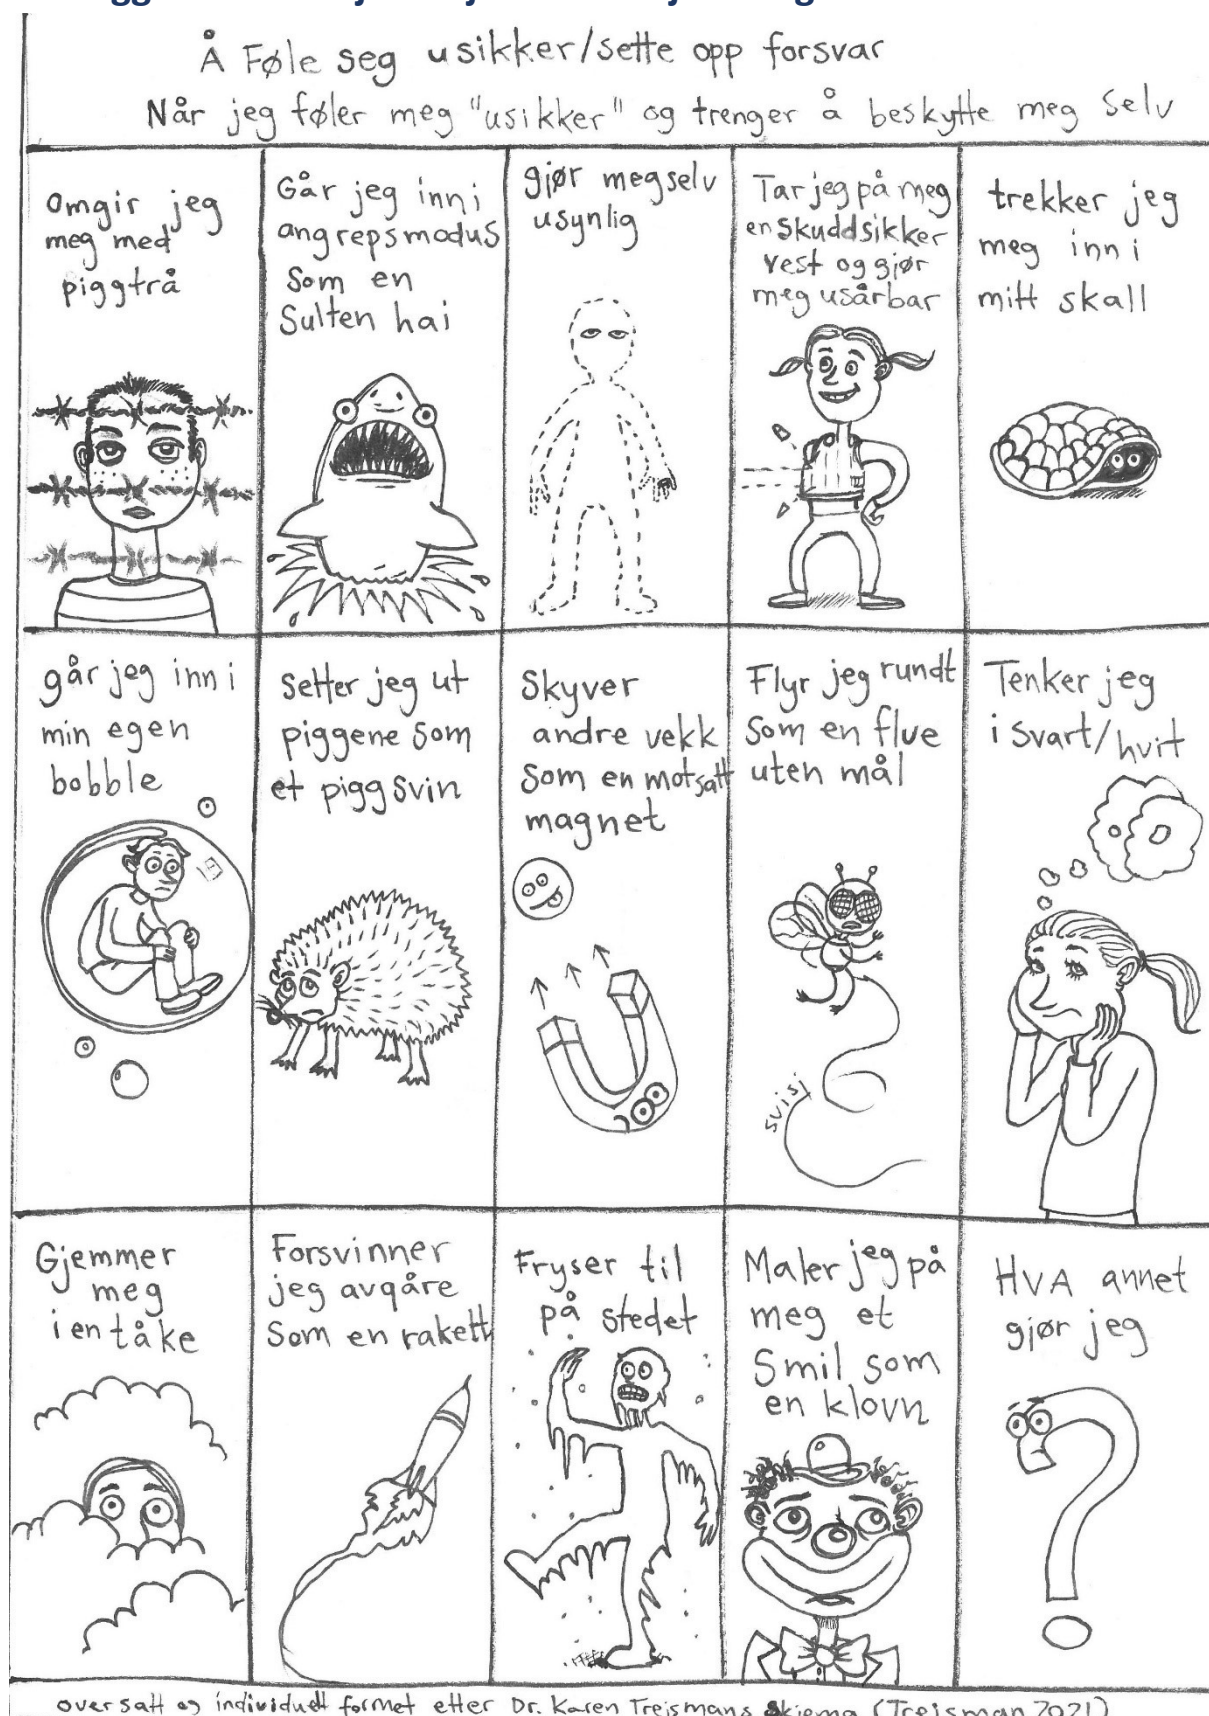 Å Føle seg usikker/sette opp forsvar
Når jeg føler meg "usikker" og trenger å beskytte meg selv
Omgir jeg
meg med
piggtrå
Går jeg inn i
angrepsmodus
som en
Sulten hai
gjør megselv
usynlig
Tar jeg på meg
en skuddsikker
vest og gjør
meg usårbar
trekker jeg
meg inn i
mitt skall
går jeg inn i
min egen
bobble
setter jeg ut
piggene som
et piggsvin
Skyver
andre vekk
som en motsatt
magnet
Flyr jeg rundt
som en flue
uten mål
svisj
Tenker jeg
i svart/hvit
Gjemmer
meg
i en tåke
Forsvinner
jeg avgåre
som en rakett
Fryser til
på stedet
Maler jeg på
meg et
Smil som
en klovn
HVA annet
gjør jeg
?
oversatt og individuelt formet etter Dr. Karen Treismans skjema (Treisman 2021)